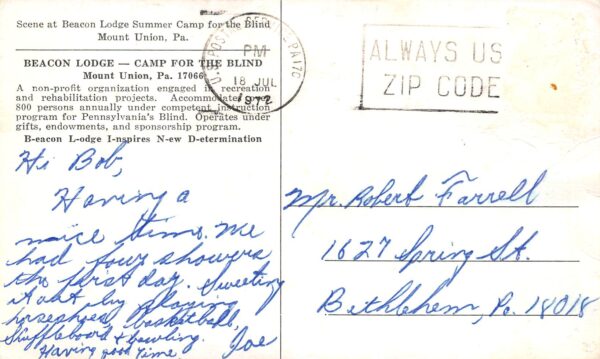 Scene at Beacon Lodge Summer Camp for the Blind
Mount Union, Pa.
BEACON LODGE — CAMP FOR THE BLIND
Mount Union, Pa. 17066
A non-profit organization engaged in recreation
and rehabilitation projects. Accommodates over
800 persons annually under competent instruction
program for Pennsylvania's Blind. Operates under
gifts, endowments, and sponsorship program.
B-eacon L-odge I-nspires N-ew D-etermination
U.S. POSTAL SERVICE PA 170
PM
18 JUL
1972
ALWAYS US
ZIP CODE
Hi Bob,
Having a
nice time. We
had four showers
the first day. Sweeting
it out by playing
horseshoes, basketball,
Shuffleboard & bowling.
Having good time
Joe
Mr. Robert Farrell
1627 Spring St.
Bethlehem, Pa. 18018